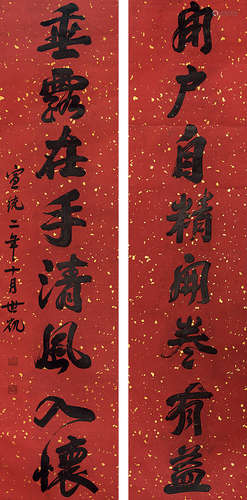 閉户自精開卷有益
垂露在手清風入懷
宣統二年十月世凱